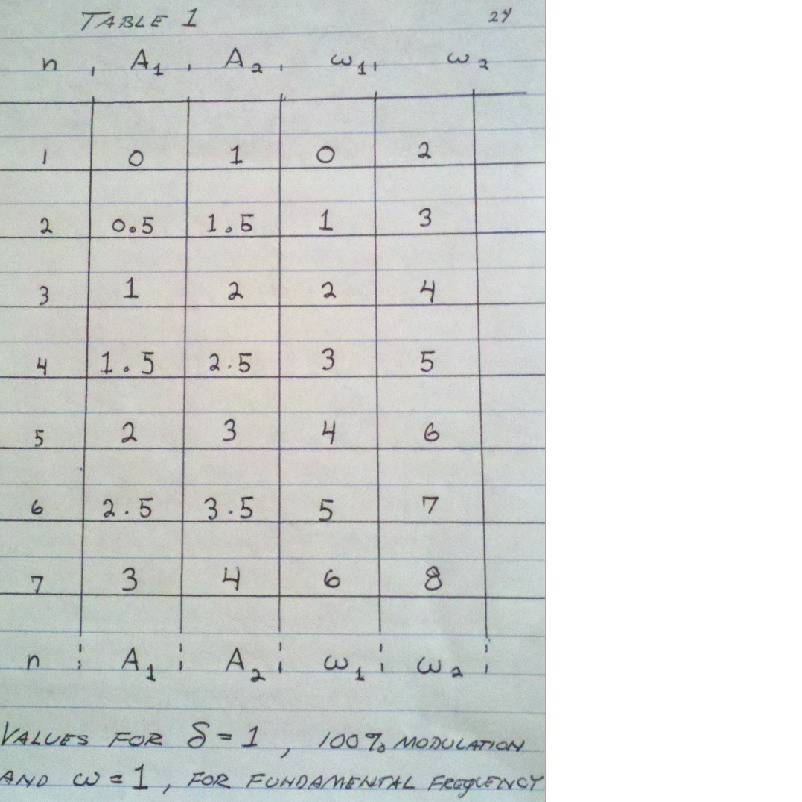 TABLE 1 24
n A1 A2 ω1 ω2
1 0 1 0 2
2 0.5 1.5 1 3
3 1 2 2 4
4 1.5 2.5 3 5
5 2 3 4 6
6 2.5 3.5 5 7
7 3 4 6 8
n A1 A2 ω1 ω2
VALUES FOR δ = 1, 100% MODULATION
AND ω = 1, FOR FUNDAMENTAL FREQUENCY